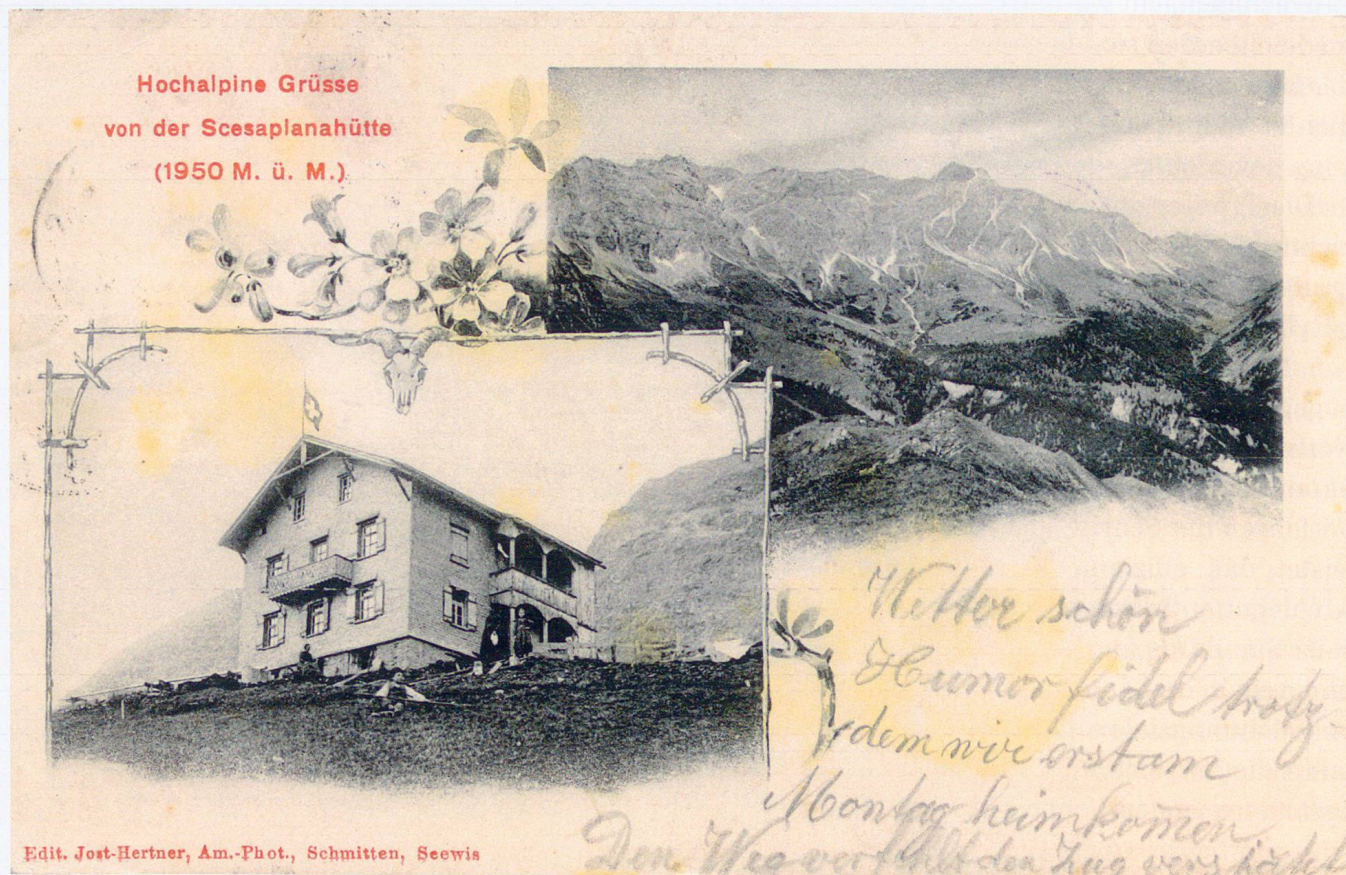 Hochalpine Grüsse
von der Scesaplanahütte
(1950 M. ü. M.)
Wetter schön
Humor fidel trotz-
dem wir erst am
Montag heimkom̄en,
Den Weg verfehlt den Zug verspätet
Edit. Jost-Hertner, Am.-Phot., Schmitten, Seewis